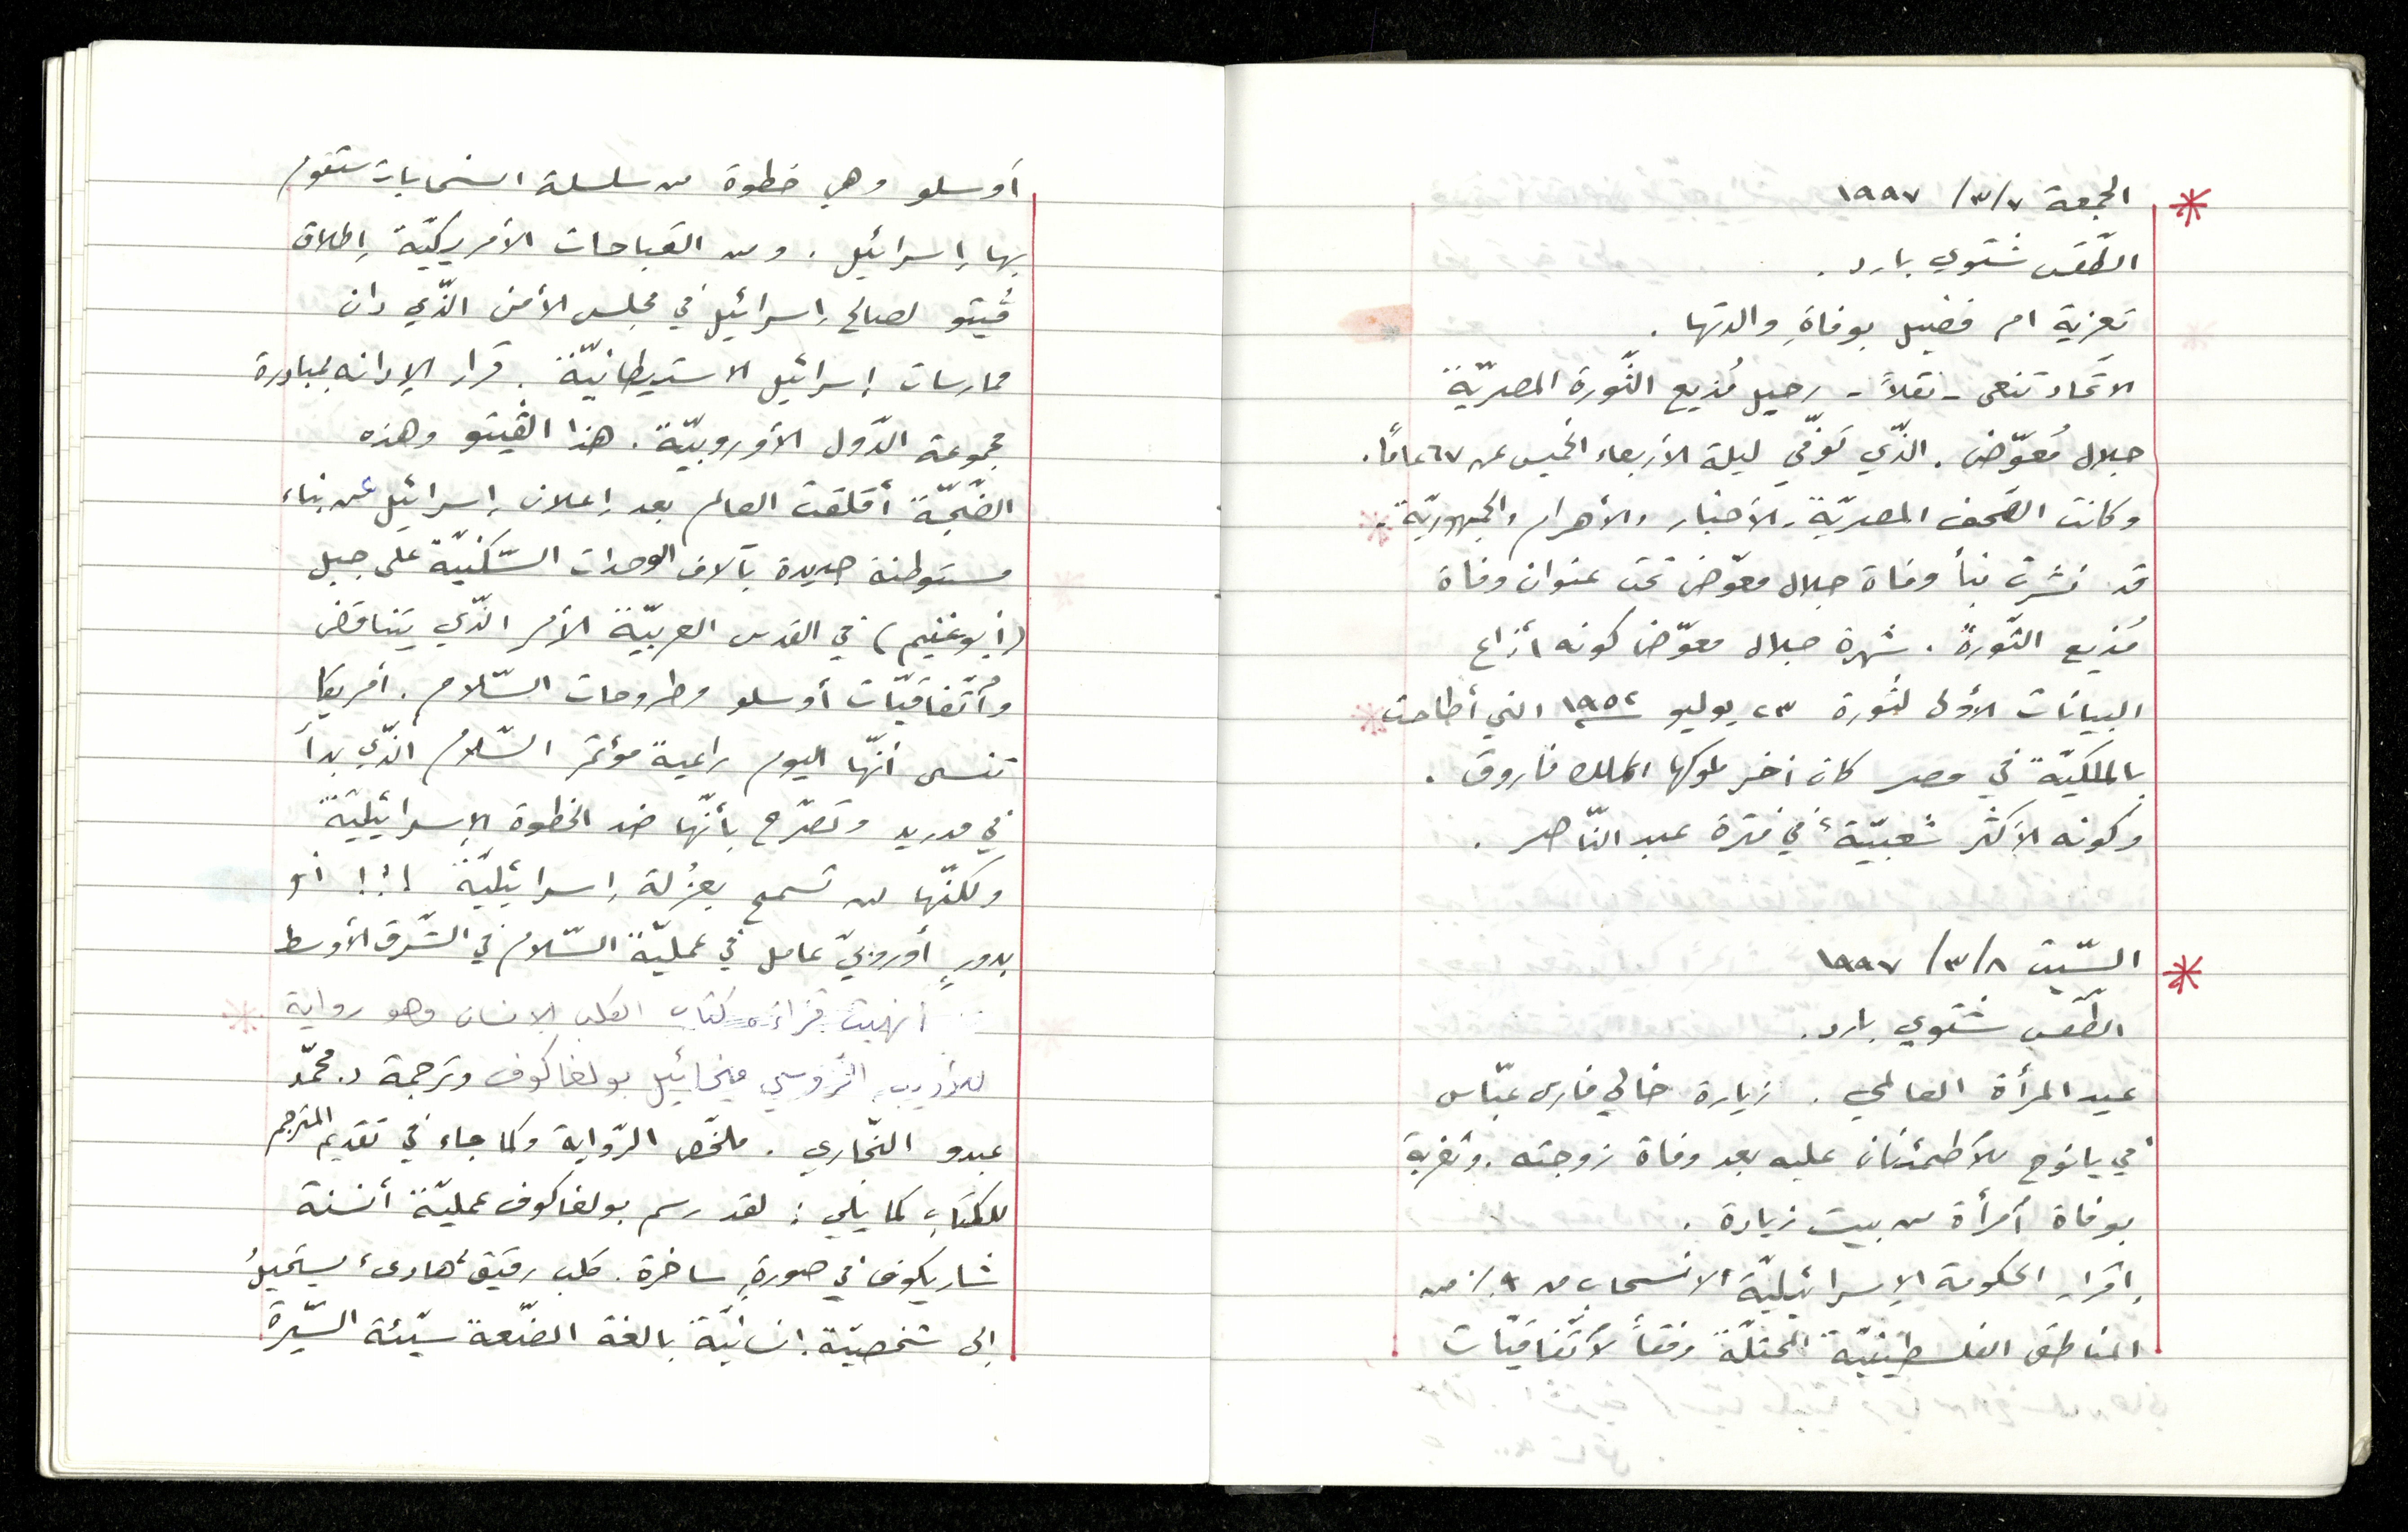 الجمعة ٧/٣/ ١٩٩٧
الطّقس شتوي بارد.
تعزية ام فضيل بوفاةِ والدتها.
الاتّحاد تنعى - نقلاً - رحيل مُذيع الثّورة المصريّة
جلال مُعوّض. الذّي توفّي ليلة الأربعاء الخميس عن ٦٧ عامًا.
وكانت الصّحف المصريّة - الأخبار والأهرام والجمهوريّة -
قد نشرت نبأ وفاة جلال معوّض تحت عنوان وفاة
مُذيع الثّورة. شهرة جلال معوّض كونه أذاع
البيانات الأولى لثورة ٢٣ يوليو ١٩٥٢ التي أطاحت
بالملكيّة في مصر كان آخر ملوكها الملك فاروق.
وكونه الأكثر شعبيّة في فترة عبد النّاصر.
السّبت ٨/٣/ ١٩٩٧
الطّقس شتوي بارد.
عيد المرأة العالمي. زيارة خالي فارس عبّاس
في يانوح للأطمئنان عليه بعد وفاة زوجته. وتعزية
بوفاة أمرأة من بيت زيادة.
إقرار الحكومة الإسرائيليّة الانسحاب من ٩٪ من
المناطق الفلسطينيّة المحتلّة وفقاً لأتّفاقيّات
أوسلو وهي خطوة من سلسلة انسحابات ستقوم
بها إسرائيل. ومن القباحات الأمريكيّة إطلاق
ڤيتو لصالح إسرائيل في مجلس الأمن الذّي دان
ممارسات إسرائيل الاستيطانيّة. قرار الإدانه بمبادرة
مجموعة الدّول الأوروبيّة. هذا الڤيتو وهذه
الضّجّة أقلقت العالم بعد إعلان إسرائيل عن بناء
مستوطنة جديدة بآلاف الوحدات السّكنيّة على جبل
(أبو غنيم) في القدس العربيّة الأمر الذّي يتناقض
وأتّفاقيّات أوسلو وطروحات السّلام. أمريكا
تنسى أنّها اليوم راعية مؤتمر السّلام الذّي بدأ
في مدريد وتصرّح بأنّها ضد الخطوة الإسرائيليّة
ولكنّها لن تسمح بعزُلة إسرائيليّة !!! أو
بدورٍ أوروبيّ عامل في عمليّة السّلام في الشّرق الأوسط
أنهيت قراءة كتاب الكلب الإنسان وهو رواية
للأديب الرّوسي ميخائيل بولغاكوف وترجمة د. محمّد
عبدو النّجاري. ملخّص الرّواية وكما جاء في تقديم المترجم
للكتاب كما يلي: لقد رسم بولغاكوف عمليّة أنسنة
شاريكوف في صورةٍ ساخرة. كلب رقيق هادىء يستحيلُ
إلى شخصيّة إنسانيّة بالغة الضّعة سيّئة السّيرة